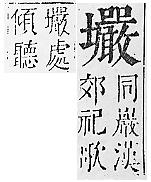 壧
同巖漢
郊祀歌
壧處
傾聽